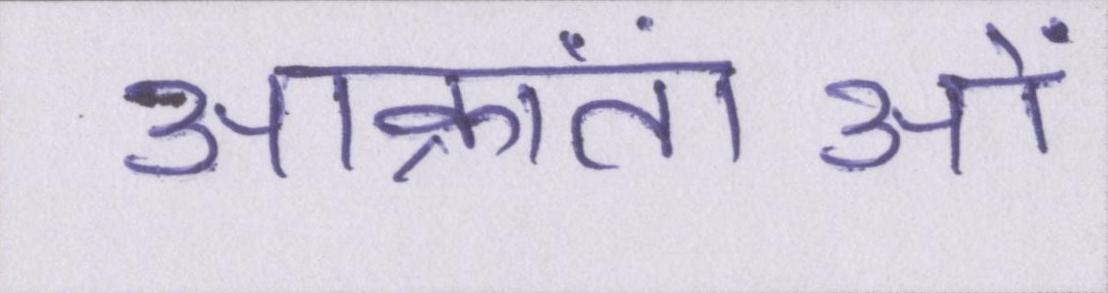 आक्रांतांओं